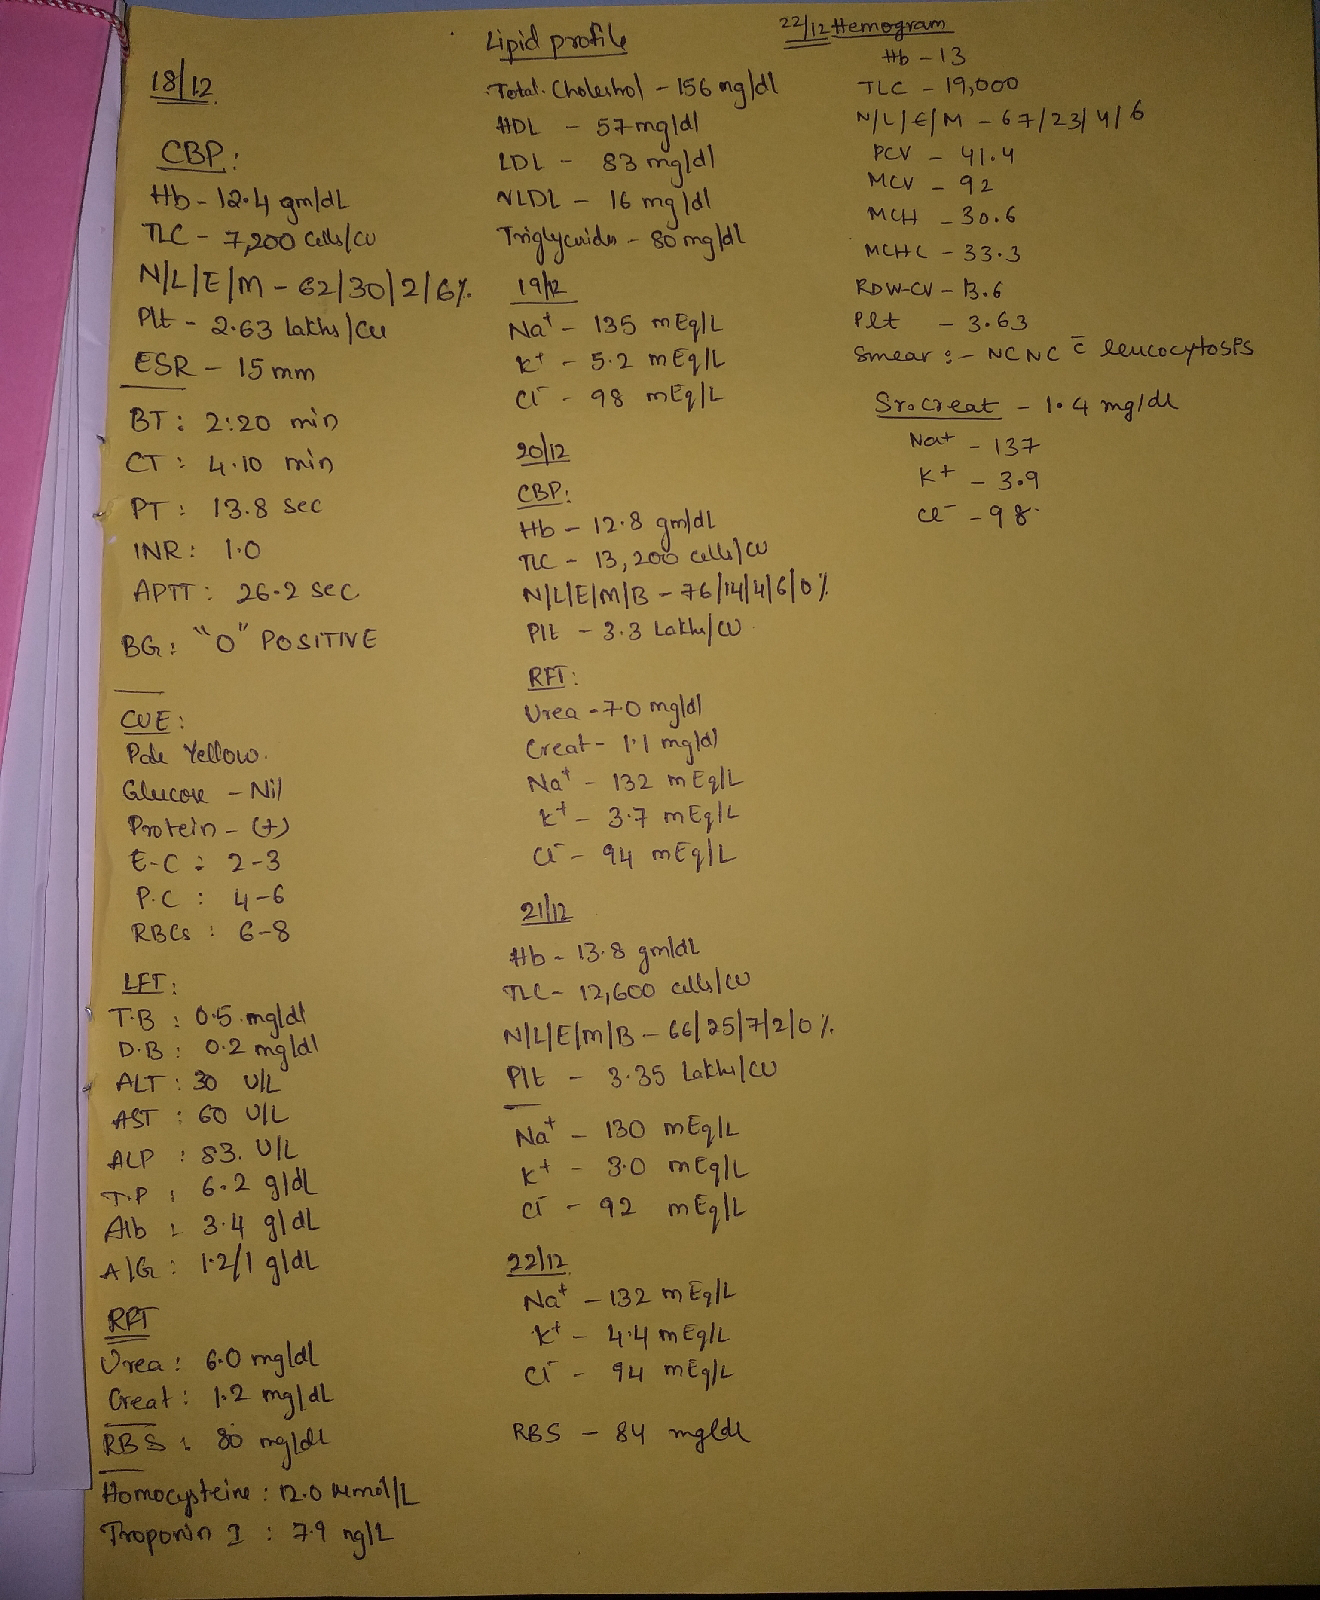 18/12
CBP:
Hb - 12.4 gm/dL
TLC - 7,200 cells/cu
N/L/E/M - 62/30/2/6%
Plt - 2.63 lakhs/cu
ESR - 15 mm
BT: 2:20 min
CT: 4.10 min
PT: 13.8 sec
INR: 1.0
APTT: 26.2 sec
BG: "O" POSITIVE
CUE:
Pale Yellow.
Glucose - Nil
Protein - (+)
E.C: 2-3
P.C: 4-6
RBCs: 6-8
LFT:
T.B: 0.5 mg/dl
D.B: 0.2 mg/dl
ALT: 30 U/L
AST: 60 U/L
ALP: 83. U/L
T.P: 6.2 g/dL
Alb: 3.4 g/dL
A/G: 1.2/1 g/dL
RFT
Urea: 6.0 mg/dl
Creat: 1.2 mg/dL
RBS: 80 mg/dl
Homocysteine: 12.0 μmol/L
Troponin I: 7.9 ng/L
Lipid profile
Total. Cholestrol - 156 mg/dl
HDL - 57 mg/dl
LDL - 83 mg/dl
VLDL - 16 mg/dl
Triglycerides - 80 mg/dl
19/12
Na+ - 135 mEq/L
K+ - 5.2 mEq/L
Cl- - 98 mEq/L
20/12
CBP:
Hb - 12.8 gm/dL
TLC - 13,200 cells/cu
N/L/E/M/B - 76/14/4/6/0%
Plt - 3.3 Lakhs/cu
RFT:
Urea - 7.0 mg/dl
Creat - 1.1 mg/dl
Na+ - 132 mEq/L
K+ - 3.7 mEq/L
Cl- - 94 mEq/L
21/12
Hb - 13.8 gm/dL
TLC - 12,600 cells/cu
N/L/E/M/B - 66/25/7/2/0%
Plt - 3.35 Lakhs/cu
Na+ - 130 mEq/L
K+ - 3.0 mEq/L
Cl- - 92 mEq/L
22/12
Na+ - 132 mEq/L
K+ - 4.4 mEq/L
Cl- - 94 mEq/L
RBS - 84 mg/dl
22/12 Hemogram
Hb - 13
TLC - 19,000
N/L/E/M - 67/23/4/6
PCV - 41.4
MCV - 92
MCH - 30.6
MCHC - 33.3
RDW-CV - 13.6
Plt - 3.63
Smear :- NCNC c̄ leucocytosis
Sr.creat - 1.4 mg/dl
Na+ - 137
K+ - 3.9
Cl- - 98.